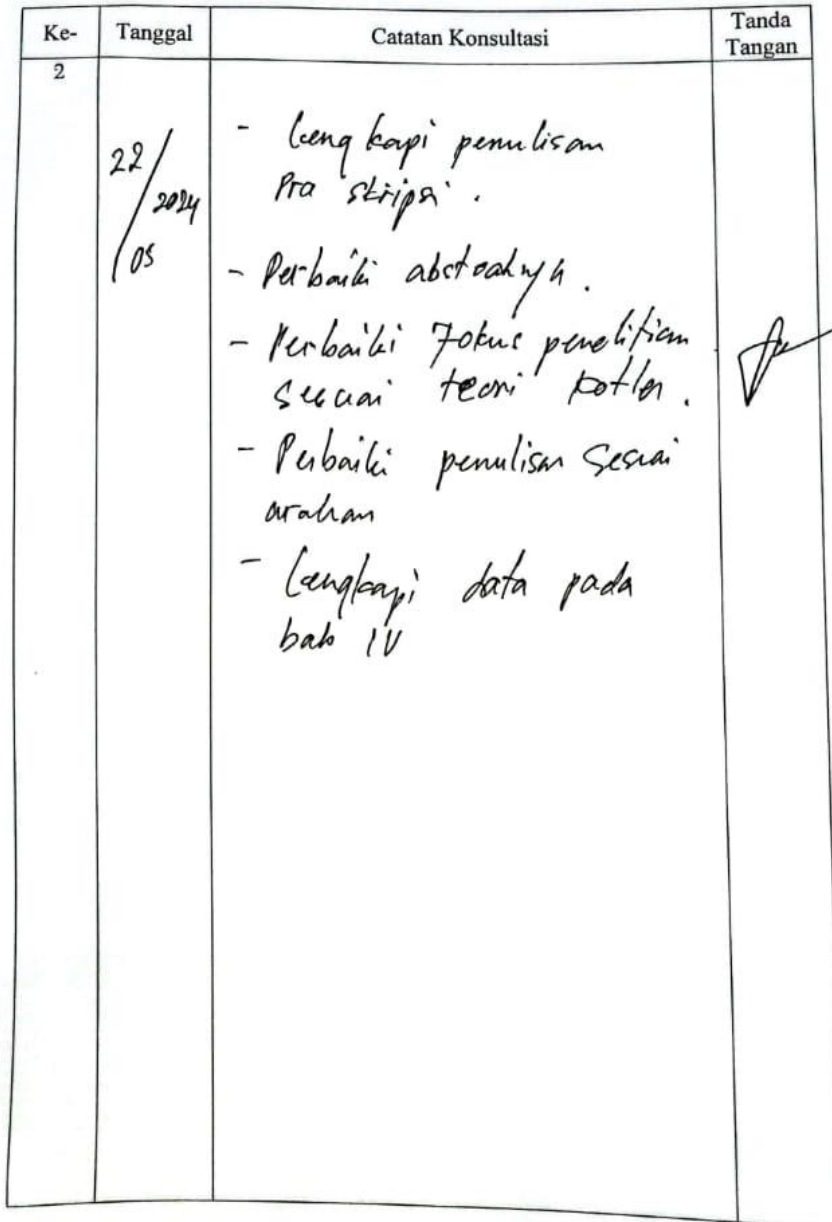 Ke-
Tanggal
Catatan Konsultasi
Tanda
Tangan
2
22/
2024
/05
- Lengkapi penulisan
Pra skripsi .
- Perbaiki abstraknya .
- Perbaiki Fokus penelitian
sesuai teori Kotler .
- Perbaiki penulisan Sesuai
arahan
- Lengkapi data pada
bab IV